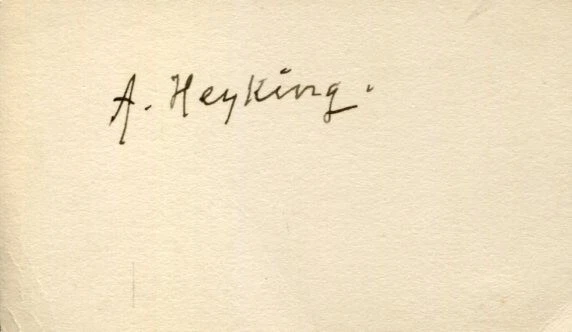 A. Heyking.